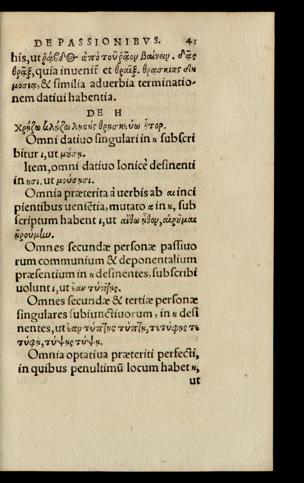 DE PASSIONIBVS. 41
his, ut ῥάβδος ἀπὸ τοῦ ῥᾷον βαίνειν.
quia inueniẽt et
& similia aduerbia terminatio-
nem datiui habentia.
DE H
Χρῄζω κλῄζω λῃστὴς θρησκεύω
Omni datiuo singulari in η subscri
bitur ι, ut μούσῃ.
Item, omni datiuo Ionicè desinenti
in ῃσι, ut μούσῃσι.
Omnia præterita à uerbis ab αι inci
pientibus ueniẽtia, mutato α in η, sub
scriptum habent ι, ut αἴθω ᾖθον, αἰροῦμαι
ᾑρούμην.
Omnes secundæ personæ passiuo
rum communium & deponentalium
præsentium in η desinentes, subscribi
uolunt ι, ut ἐὰν τύπῃς.
Omnes secundæ & tertiæ personæ
singulares subiunctiuorum, in η desi
nentes, ut ἐὰν τύπῃς τύπῃ, τετύφῃς τε
τύφῃ, τύψῃς τύψῃ.
Omnia optatiua præteriti perfecti,
in quibus penultimũ locum habet η,
ut